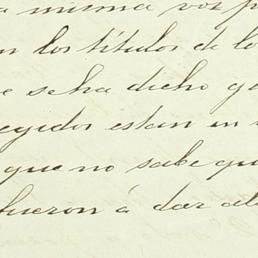 a misma vos p
n los títulos de lo
e se ha dicho q
egidos estan en
que no sabe qu
fueron á dar al